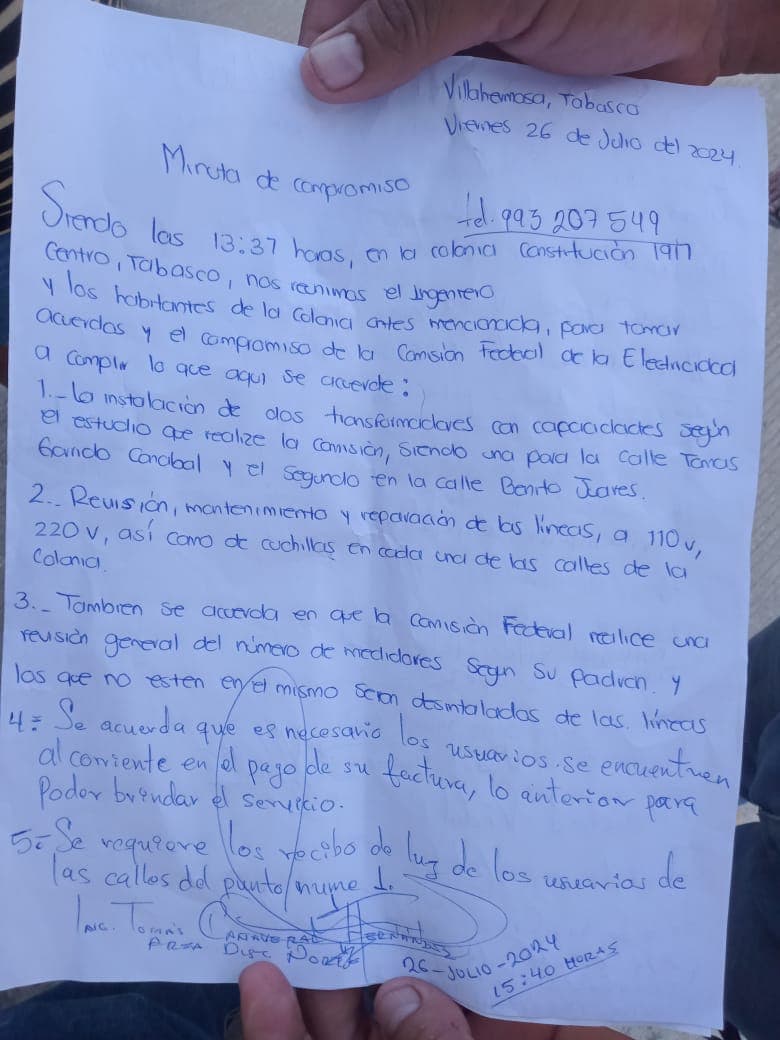 Villahermosa, Tabasco
Viernes 26 de Julio del 2024.
Minuta de compromiso
tel. 993 207 549
Siendo las 13:37 horas, en la colonia Constitución 1917
Centro, Tabasco, nos reunimos el Ingeniero
y los habitantes de la Colonia antes mencionada, para tomar
acuerdos y el compromiso de la Comisión Federal de la Electricidad
a cumplir lo que aqui se acuerde:
1.- la instalación de dos transformadores con capacidades según
el estudio que realize la comisión, siendo una para la calle Tomas
Garrido Canabal y el segundo en la calle Benito Juares.
2.- Revisión, mantenimiento y reparación de las líneas, a 110v,
220v, así como de cuchillas en cada una de las calles de la
Colonia.
3.- Tambien se acuerda en que la comisión Federal realice una
revisión general del número de medidores segn su padrón. y
los que no esten en el mismo seran desintalados de las. líneas
4= Se acuerda que es necesario los usuarios. se encuentren
al corriente en el pago de su factura, lo anterior para
Poder brindar el servicio.
5= Se requiere los recibo de luz de los usuarias de
las calles del punto nume 1.
Ing. Tomás Cañaveral Hernández
Area Disc
26-Julio-2024
15:40 Horas